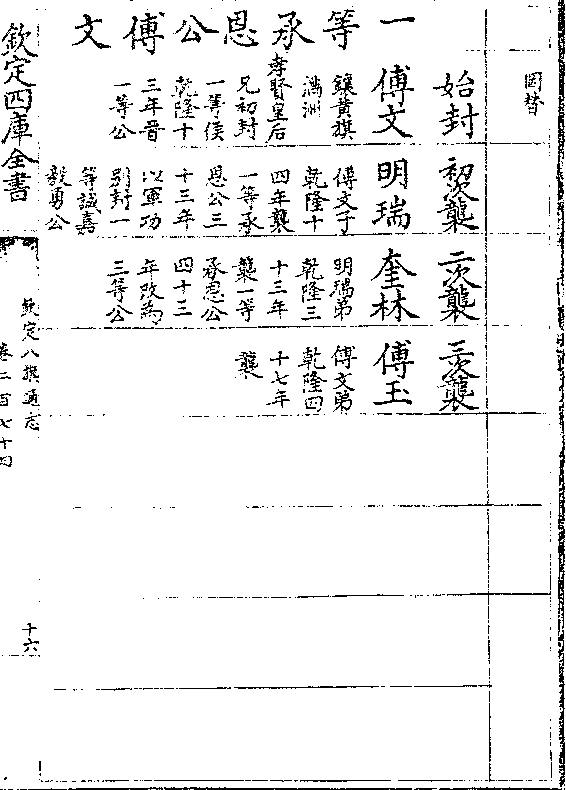 罔替
一等承恩公傅文
始封
傅文
鑲黃旗
滿洲
孝賢皇后
兄初封
一等侯
乾隆十
三年晉
一等公
初次襲
明瑞
傅文子
乾隆十
四年襲
一等承
恩公三
十三年
以軍功
別封一
等誠嘉
毅勇公
二次襲
奎林
明瑞弟
乾隆三
十三年
襲一等
承恩公
四十三
年改為
三等公
三次襲
傅玉
傅文弟
乾隆四
十七年
襲
欽定四庫全書
欽定八旗通志
卷二百七十四
十六